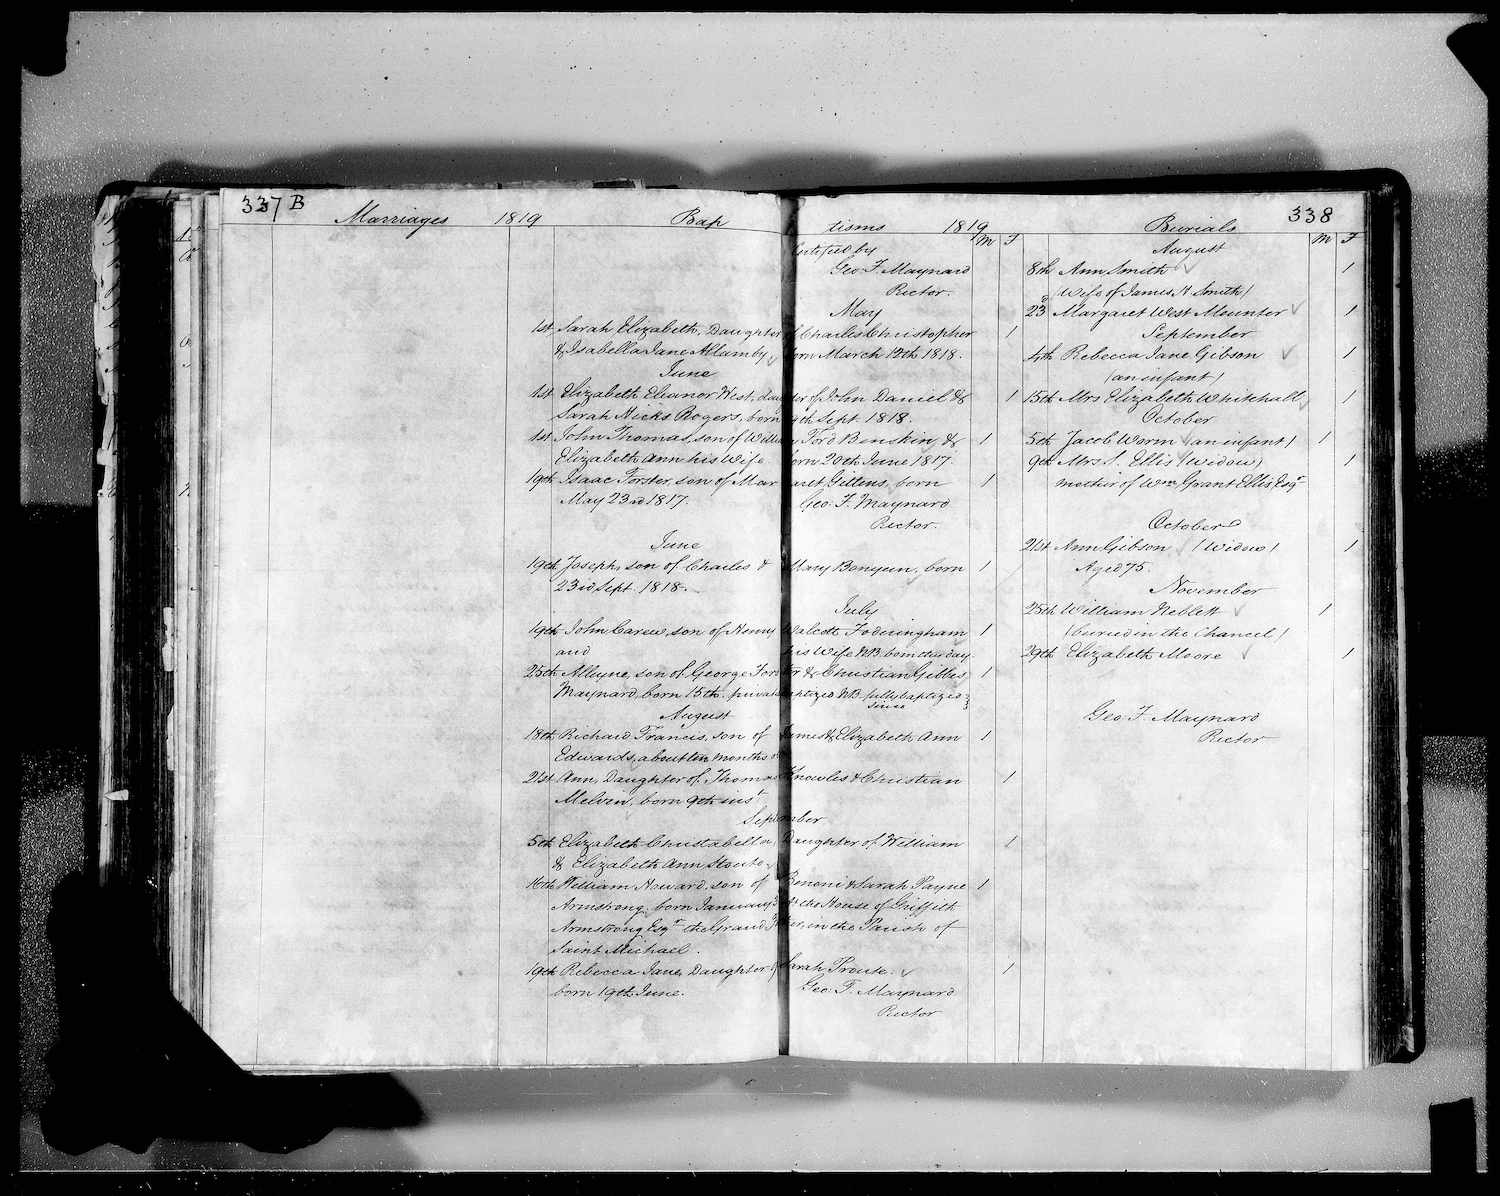 337 B
Marriages 1819 Baptisms 1819
M F
Certified by
Geo F. Maynard
Rector.
May
1st Sarah Elizabeth, Daughter of Charles Christopher 1
& Isabella Jane Allamby, born March 12th 1818.
June
1st Elizabeth Eleanor West, daughter of John Daniel & 1
Sarah Hicks Rogers, born 4th Sept. 1818.
1st John Thomas, son of William Ford Benskin, & 1
Elizabeth Ann his Wife born 20th June 1817.
19th Isaac Forster, son of Margaret Gittens, born 1
May 23rd 1817.
Geo: F. Maynard
Rector.
June
19th Joseph, son of Charles & Mary Bonyun, born 1
23rd Sept. 1818.
July
19th John Carew, son of Henry Walcott Foderingham 1
and his Wife NB. born this day
25th Alleyne, son of George Forster & Christian Gibbes 1
Maynard, born 15th. privately baptized NB. fully baptized
since
August
18th Richard Francis, son of James & Elizabeth Ann 1
Edwards, about ten months
21st Ann, Daughter of Thomas Knowles & Christian 1
Melvin, born 9th inst
September
5th Elizabeth Christabella, Daughter of William 1
& Elizabeth Ann Stoute
16th William Howard, son of Benoni & Sarah Payne 1
Armstrong, born January at the House of Griffith
Armstrong Esqr the Grand Father, in the Parish of
Saint Michael.
19th Rebecca Jane, Daughter of Sarah Proute. 1
born 19th June.
Geo: F. Maynard
Rector
338
Burials
M F
August
8th Ann Smith 1
(Wife of James H. Smith)
23d Margaret West Mounter 1
September
4th Rebecca Jane Gibson 1
(an infant)
15th Mrs Elizabeth Whitehall 1
October
5th Jacob Worm (an infant) 1
9th Mrs S. Ellis (Widow) 1
mother of Wm Grant Ellis, Esqr
October
21st Ann Gibson (Widow) 1
Aged 75.
November
25th William Neblett 1
(buried in the Chancel)
29th Elizabeth Moore 1
Geo. F. Maynard
Rector